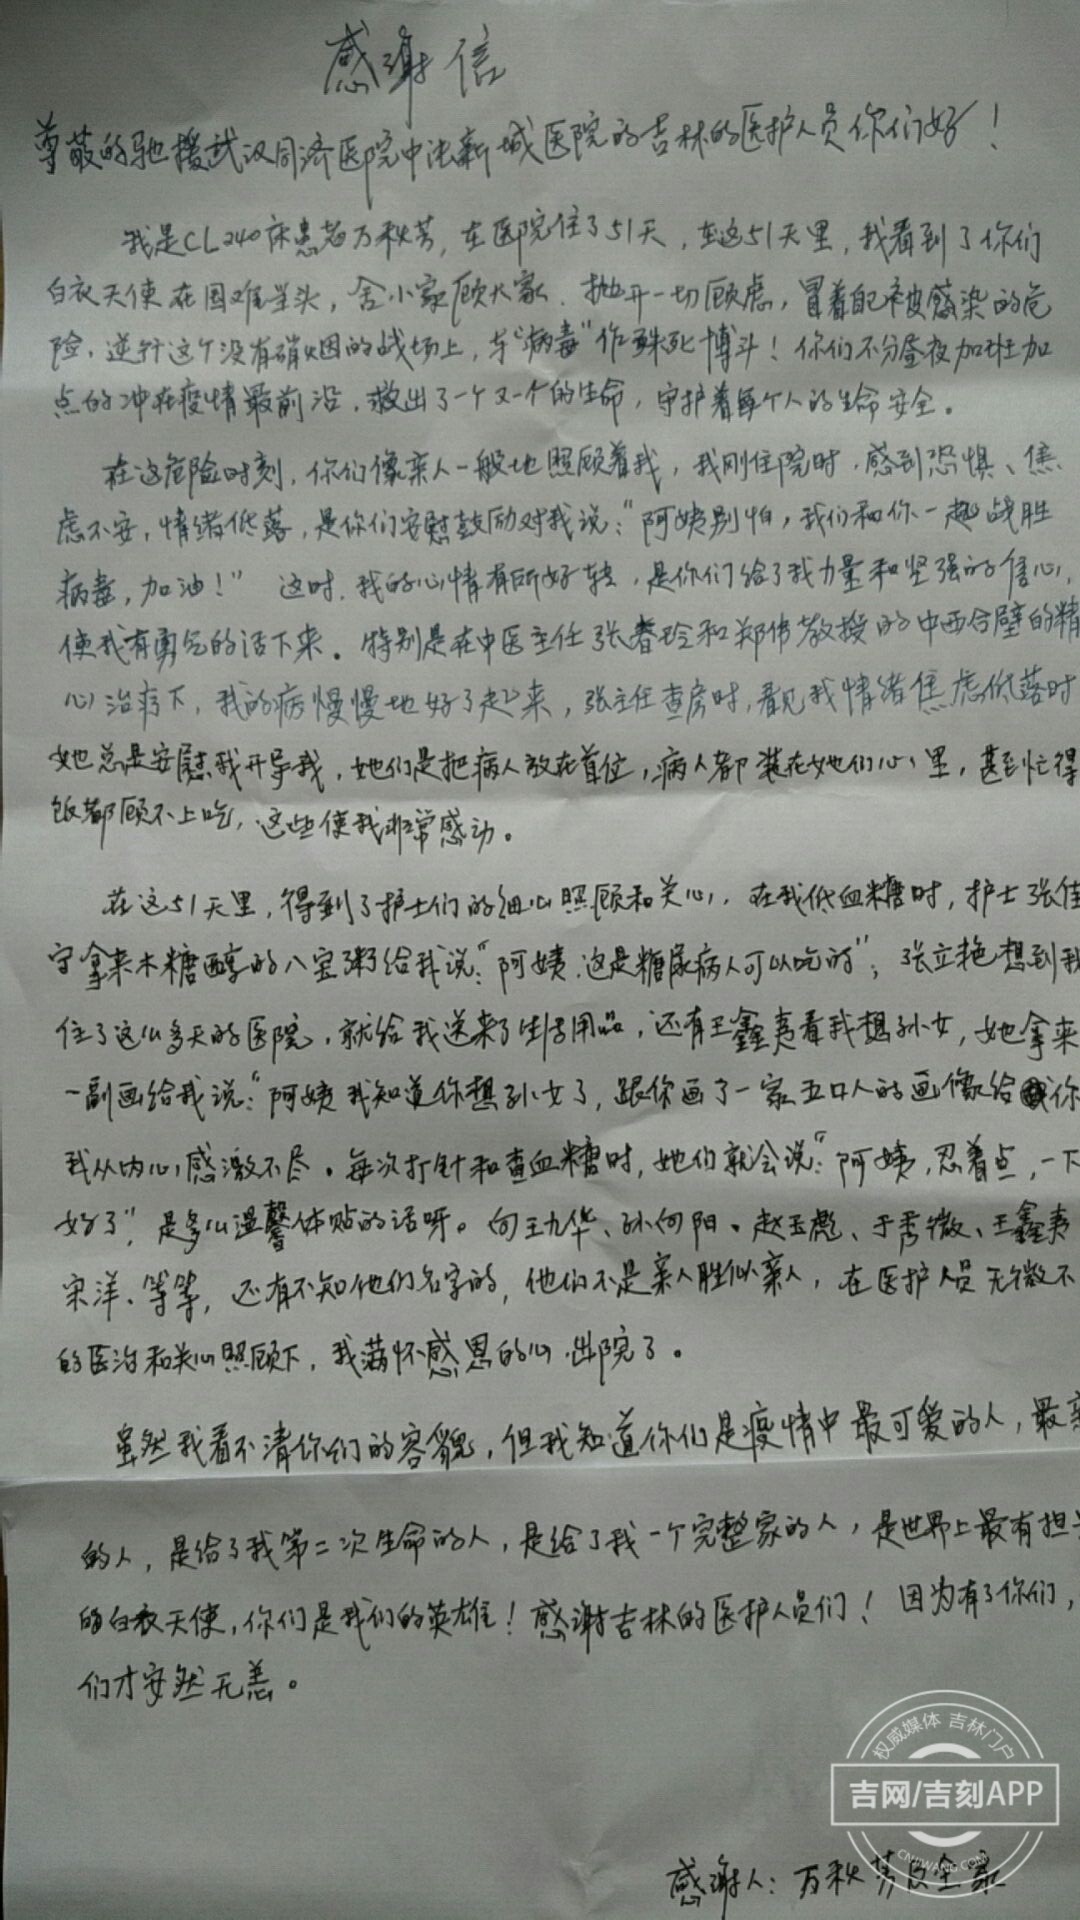 感谢信
尊敬的驰援武汉同济医院中法新城医院的吉林的医护人员你们好！
我是CL240床患者万秋芳，在医院住了51天，在这51天里，我看到了你们
白衣天使在国难当头，舍小家顾大家、抛开一切顾虑，冒着自己被感染的危
险，逆行这个没有硝烟的战场上，与“病毒”作殊死博斗！你们不分昼夜加班加
点的冲在疫情最前沿，救出了一个又一个的生命，守护着每个人的生命安全。
在这危险时刻，你们像亲人一般地照顾着我，我刚住院时，感到恐惧、焦
虑不安，情绪低落，是你们安慰鼓励对我说：“阿姨别怕，我们和你一起战胜
病毒，加油！” 这时，我的心情有所好转，是你们给了我力量和坚强的信心，
使我有勇气的活下来。特别是在中医主任张春玲和郑伟教授的中西合壁的精
心治疗下，我的病慢慢地好了起来，张主任查房时，看见我情绪焦虑低落时
她总是安慰我开导我，她们是把病人放在首位，病人都装在她们心里，甚到忙得
饭都顾不上吃，这些使我非常感动。
在这51天里，得到了护士们的细心照顾和关心，在我低血糖时，护士张佳
宁拿来木糖醇的八宝粥给我说：“阿姨，这是糖尿病人可以吃的”，张立艳想到我
住了这么多天的医院，就给我送来了生活用品，还有王鑫夷看我想孙女，她拿来
一副画给我说：“阿姨我知道你想孙女了，跟你画了一家五口人的画像给你
我从内心感激不尽。每次打针和查血糖时，她们就会说：“阿姨，忍着点，一下
好了”，是多么温馨体贴的话呀。向王九华、孙向阳、赵玉彪、于秀微、王鑫夷
宋洋、等等，还有不知他们名字的，他们不是亲人胜似亲人，在医护人员无微不
的医治和关心照顾下，我满怀感恩的心出院了。
虽然我看不清你们的容貌，但我知道你们是疫情中最可爱的人，最亲
的人，是给了我第二次生命的人，是给了我一个完整家的人，是世界上最有担当
的白衣天使，你们是我们的英雄！感谢吉林的医护人员们！因为有了你们，
们才安然无恙。
权威媒体 吉林门户
吉网/吉刻APP
CNJIWANG.COM
感谢人：万秋芳及全家